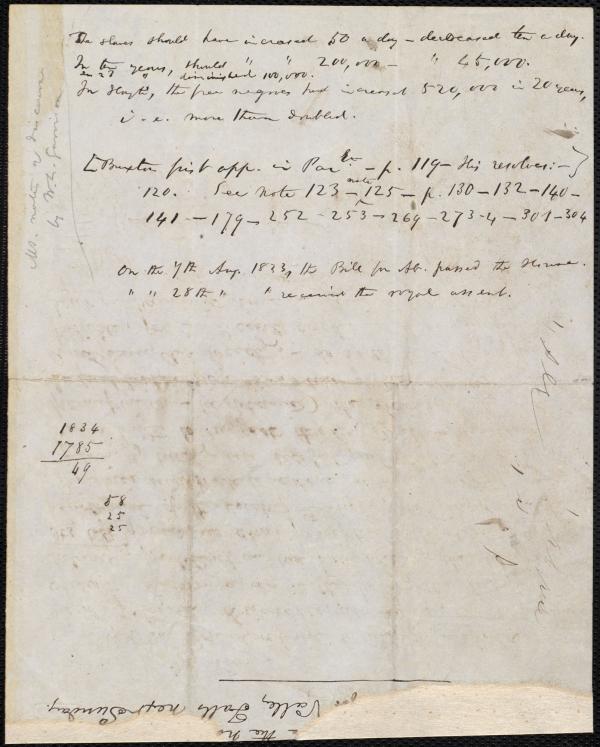 The slaves should have increased 50 a day – decreased ten a day.
In ten years, should " " 200,000 – " 45,000.
in 23 " diminished 100,000.
In Hayti, the free negroes had increased 520,000 in 20 years,
i. e. more than doubled.
[Buxton first app. in Par – p. 119 – His resolves: – }
120. See note 123 – note 125 – p. 130 – 132 – 140 –
141 – 179 – 252 – 253 – 269 – 273-4 – 301 – 304
On the 7th Aug. 1833, the Bill for Ab. passed the House.
" " 28th " " received the royal assent.
Ms. notes of discourse
by W. L. Garrison
1834
1785
49
58
25
25
Valley Falls next Sunday.
in the